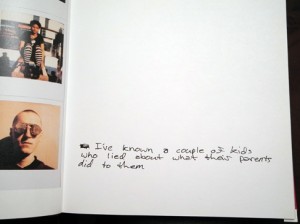 I've known a couple of kids
who lied about what their parents
did to them